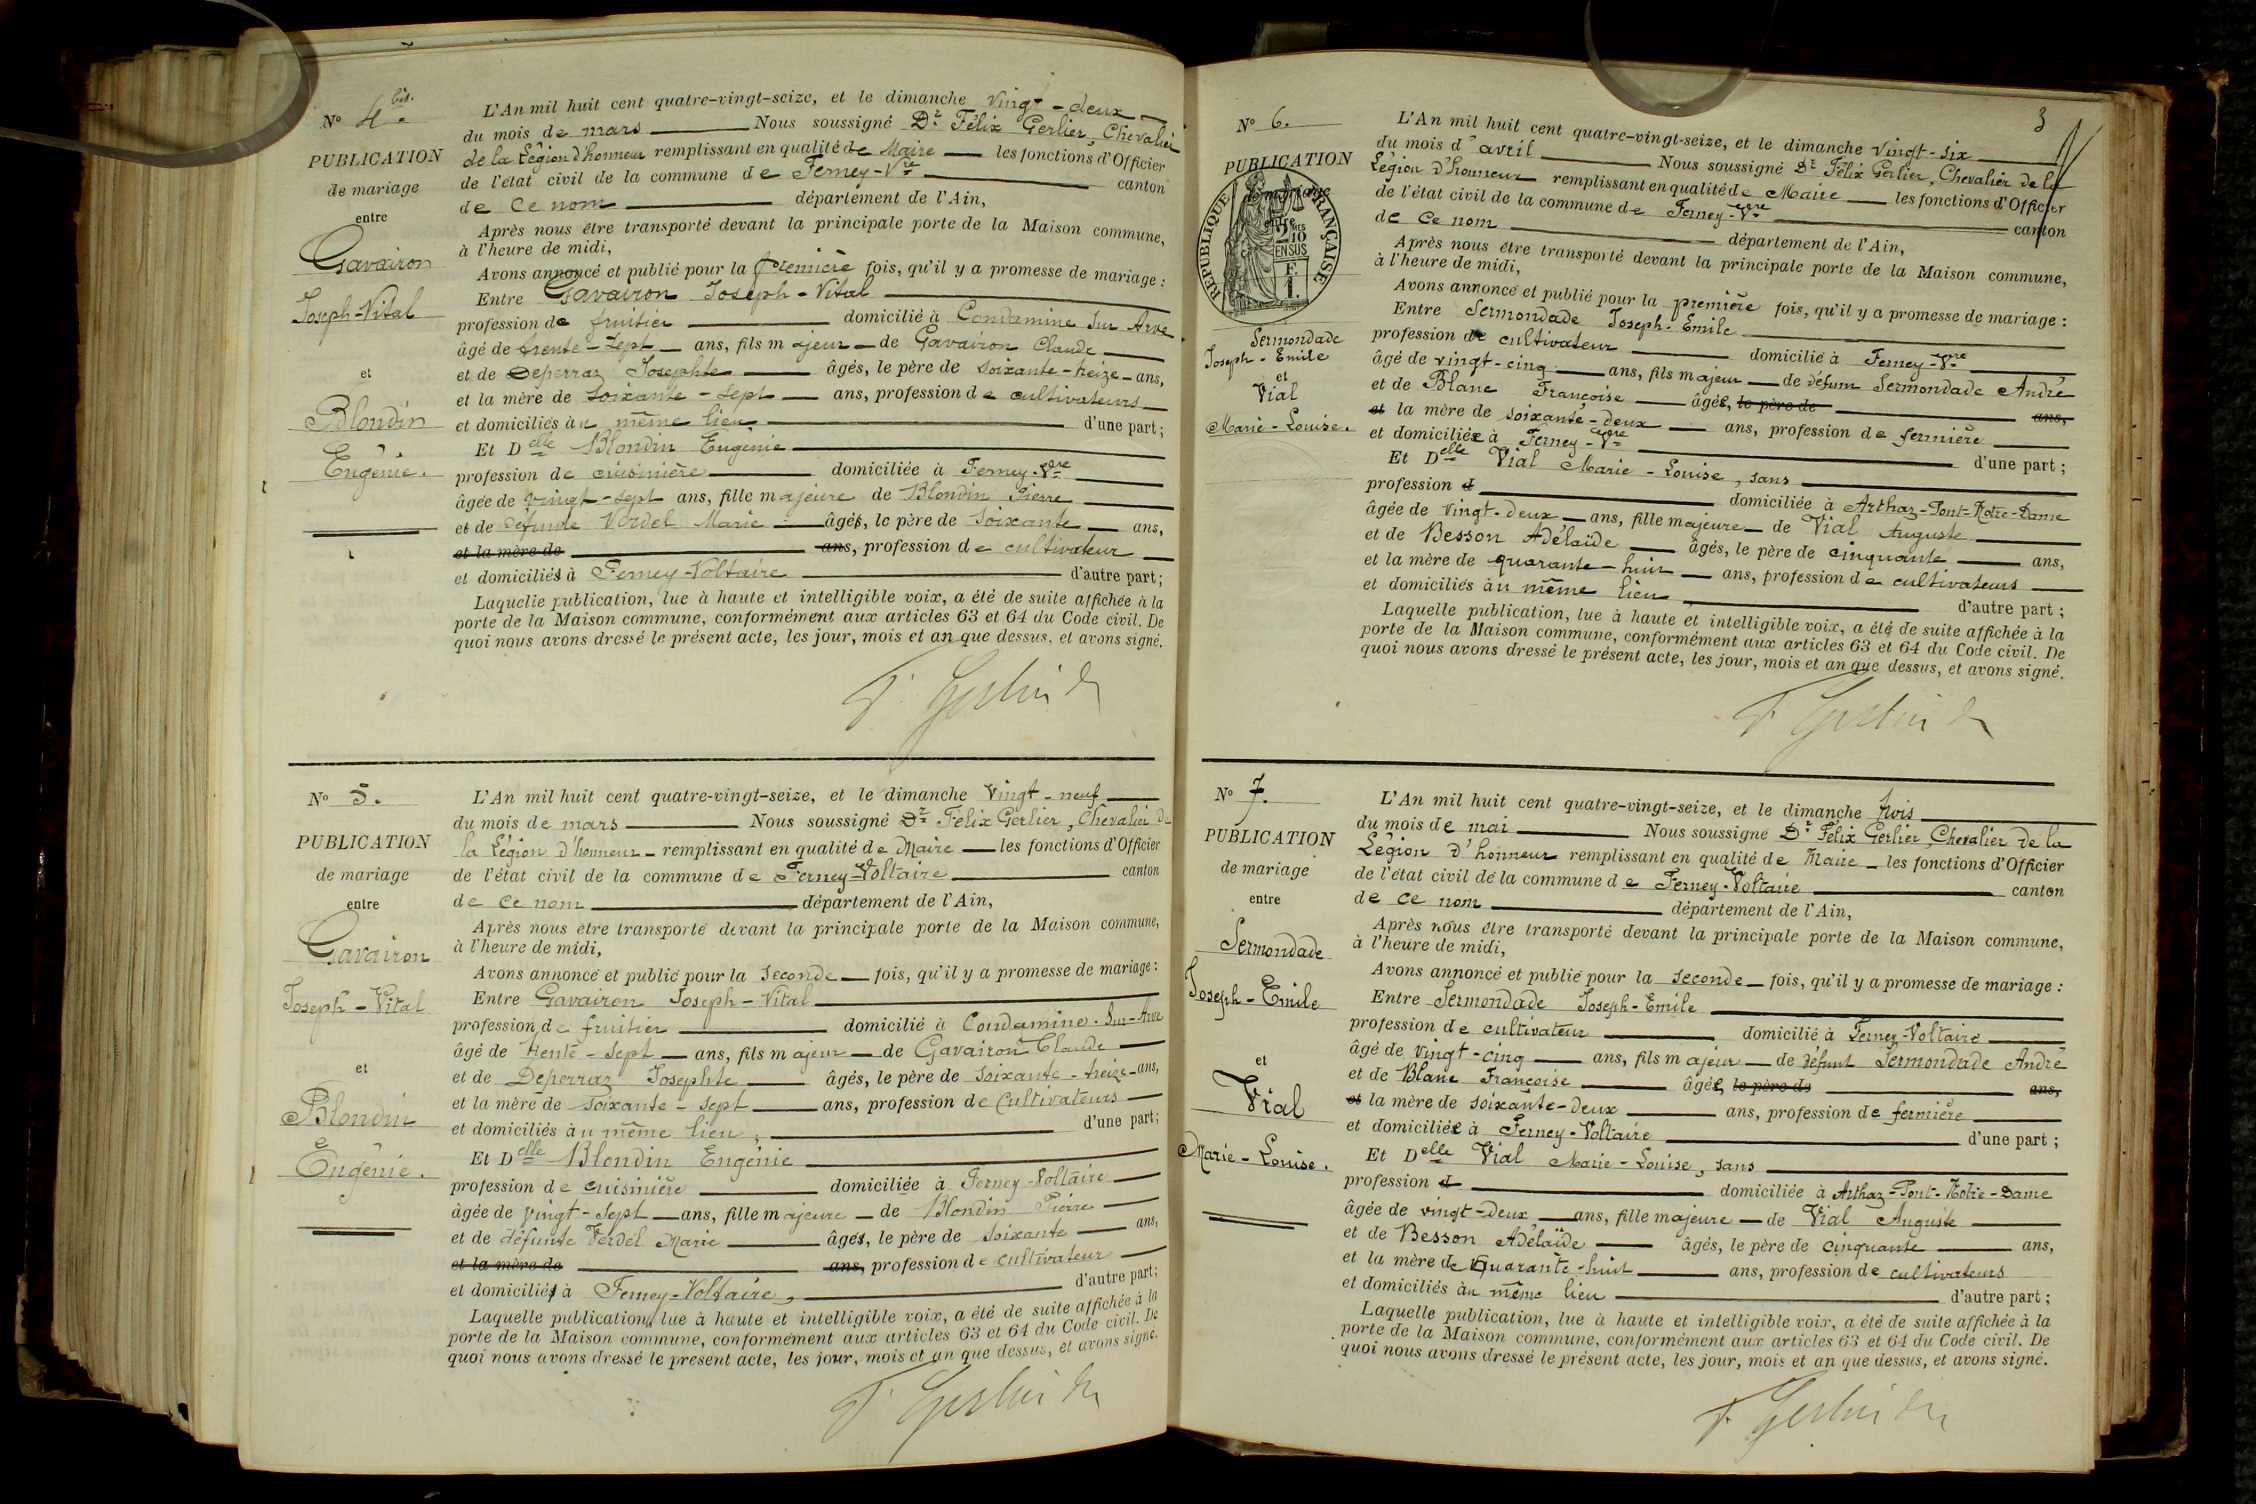 N° 4 bis.
PUBLICATION
de mariage
entre
Gavairon
Joseph-Vital
et
Blondin
Eugénie.
L'An mil huit cent quatre-vingt-seize, et le dimanche vingt-deux
du mois de mars Nous soussigné Dr. Félix Gerlier, Chevalier
de la Légion d'honneur remplissant en qualité de Maire les fonctions d'Officier
de l'état civil de la commune de Ferney-Vre canton
de Ce nom département de l'Ain,
Après nous être transporté devant la principale porte de la Maison commune,
à l'heure de midi,
Avons annoncé et publié pour la première fois, qu'il y a promesse de mariage :
Entre Gavairon Joseph-Vital
profession de fruitier domicilié à Condamine sur Arve
âgé de trente-sept ans, fils majeur de Gavairon Claude
et de Deperraz Josephte âgés, le père de soixante-treize ans,
et la mère de soixante-sept ans, profession de cultivateurs
et domiciliés au même lieu, d'une part ;
Et Delle Blondin Eugénie
profession de cuisinière domiciliée à Ferney-Vre
âgée de vingt-sept ans, fille majeure de Blondin Pierre
et de défunte Verdel Marie âgés, le père de soixante ans,
et la mère de ans, profession de cultivateur
et domiciliés à Ferney-Voltaire d'autre part ;
Laquelle publication, lue à haute et intelligible voix, a été de suite affichée à la
porte de la Maison commune, conformément aux articles 63 et 64 du Code civil. De
quoi nous avons dressé le présent acte, les jour, mois et an que dessus, et avons signé.
F. Gerlier Dr
N° 5.
PUBLICATION
de mariage
entre
Gavairon
Joseph-Vital
et
Blondin
Eugénie.
L'An mil huit cent quatre-vingt-seize, et le dimanche vingt-neuf
du mois de mars Nous soussigné Dr. Félix Gerlier, Chevalier de
la Légion d'honneur remplissant en qualité de Maire les fonctions d'Officier
de l'état civil de la commune de Ferney-Voltaire canton
de Ce nom département de l'Ain,
Après nous être transporté devant la principale porte de la Maison commune,
à l'heure de midi,
Avons annoncé et publié pour la seconde fois, qu'il y a promesse de mariage :
Entre Gavairon Joseph-Vital
profession de fruitier domicilié à Condamine-Sur-Arve
âgé de trente-sept ans, fils majeur de Gavairon Claude
et de Deperraz Josephte âgés, le père de soixante-treize ans,
et la mère de soixante-sept ans, profession de Cultivateurs
et domiciliés au même lieu, d'une part ;
Et Delle Blondin Eugénie
profession de cuisinière domiciliée à Ferney-Voltaire
âgée de vingt-sept ans, fille majeure de Blondin Pierre
et de défunte Verdel Marie âgés, le père de soixante ans,
et la mère de ans, profession de cultivateur
et domiciliés à Ferney-Voltaire, d'autre part ;
Laquelle publication, lue à haute et intelligible voix, a été de suite affichée à la
porte de la Maison commune, conformément aux articles 63 et 64 du Code civil. De
quoi nous avons dressé le présent acte, les jour, mois et an que dessus, et avons signé.
F. Gerlier Dr
3
N° 6.
PUBLICATION
de mariage
entre
RÉPUBLIQUE FRANÇAISE
2/10 MES
EN SUS
F.
1.
Sermondade
Joseph-Emile
et
Vial
Marie-Louise.
L'An mil huit cent quatre-vingt-seize, et le dimanche vingt-six
du mois d'avril Nous soussigné Dr. Félix Gerlier, Chevalier de la
Légion d'honneur remplissant en qualité de Maire les fonctions d'Officier
de l'état civil de la commune de Ferney-Vre canton
de ce nom département de l'Ain,
Après nous être transporté devant la principale porte de la Maison commune,
à l'heure de midi,
Avons annoncé et publié pour la première fois, qu'il y a promesse de mariage :
Entre Sermondade Joseph-Emile
profession de cultivateur domicilié à Ferney-Vre
âgé de vingt-cinq ans, fils majeur de défunt Sermondade André
et de Blanc Françoise âgée, le père de ans,
et la mère de soixante-deux ans, profession de fermière
et domiciliée à Ferney-Vre d'une part ;
Et Delle Vial Marie-Louise, sans
profession d domiciliée à Arthaz-Pont-Notre-Dame
âgée de vingt-deux ans, fille majeure de Vial Auguste
et de Besson Adélaïde âgés, le père de cinquante ans,
et la mère de quarante-huit ans, profession de cultivateurs
et domiciliés au même lieu d'autre part ;
Laquelle publication, lue à haute et intelligible voix, a été de suite affichée à la
porte de la Maison commune, conformément aux articles 63 et 64 du Code civil. De
quoi nous avons dressé le présent acte, les jour, mois et an que dessus, et avons signé.
F. Gerlier Dr
N° 7.
PUBLICATION
de mariage
entre
Sermondade
Joseph-Emile
et
Vial
Marie-Louise.
L'An mil huit cent quatre-vingt-seize, et le dimanche trois
du mois de mai Nous soussigné Dr. Félix Gerlier, Chevalier de la
Légion d'honneur remplissant en qualité de Maire les fonctions d'Officier
de l'état civil de la commune de Ferney-Voltaire canton
de ce nom département de l'Ain,
Après nous être transporté devant la principale porte de la Maison commune,
à l'heure de midi,
Avons annoncé et publié pour la seconde fois, qu'il y a promesse de mariage :
Entre Sermondade Joseph-Emile
profession de cultivateur domicilié à Ferney-Voltaire
âgé de vingt-cinq ans, fils majeur de défunt Sermondade André
et de Blanc Françoise âgée, le père de ans,
et la mère de soixante-deux ans, profession de fermière
et domiciliée à Ferney-Voltaire d'une part ;
Et Delle Vial Marie-Louise, sans
profession d domiciliée à Arthaz-Pont-Notre-Dame
âgée de vingt-deux ans, fille majeure de Vial Auguste
et de Besson Adélaïde âgés, le père de cinquante ans,
et la mère de quarante-huit ans, profession de cultivateurs
et domiciliés au même lieu d'autre part ;
Laquelle publication, lue à haute et intelligible voix, a été de suite affichée à la
porte de la Maison commune, conformément aux articles 63 et 64 du Code civil. De
quoi nous avons dressé le présent acte, les jour, mois et an que dessus, et avons signé.
F. Gerlier Dr